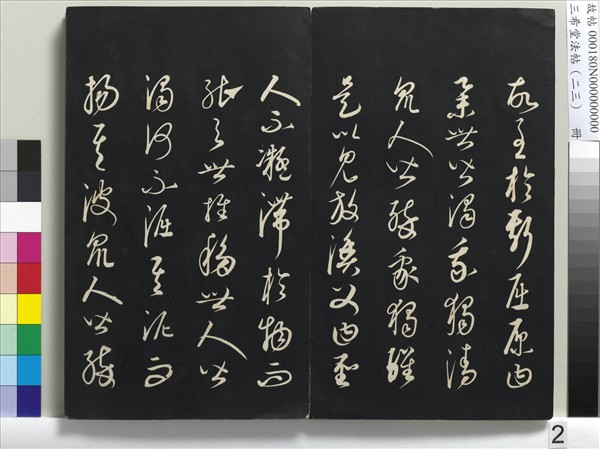 故至於斯屈原曰
舉世皆濁我獨清
眾人皆醉我獨醒
是以見放漁父曰聖
人不凝滯於物而
能與世推移世人皆
濁何不淈其泥而
揚其波眾人皆醉
故帖 000180N000000000
三希堂法帖(二三) 冊
2